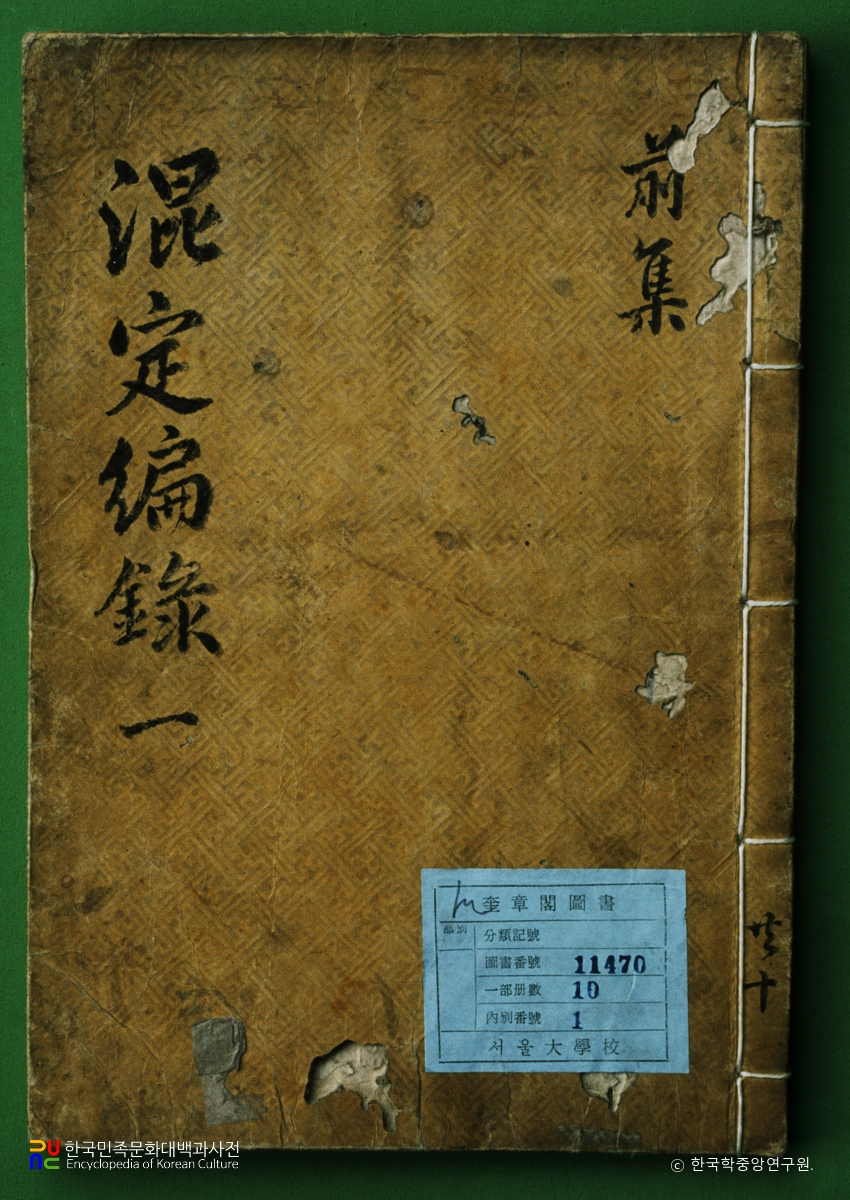 前集
混定編錄 一
共十
奎章閣圖書
部別
分類記號
圖書番號 11470
一部册數 10
內別番號 1
서울大學校
한국민족문화대백과사전
Encyclopedia of Korean Culture
© 한국학중앙연구원.